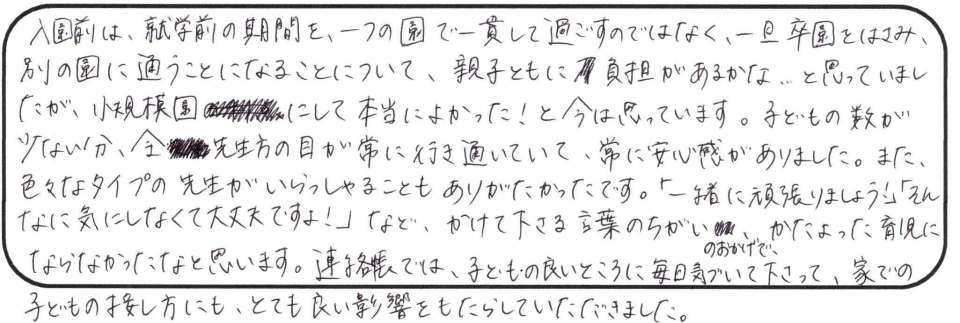 入園前は、就学前の期間を、一つの園で一貫して過ごすのではなく、一旦卒園をはさみ、
別の園に通うことになることについて、親子ともに負担があるかな…と思っていまし
たが、小規模園にして本当によかった！と今は思っています。子どもの数が
少ない分、全先生方の目が常に行き通いていて、常に安心感がありました。また、
色々なタイプの先生がいらっしゃることもありがたかったです。「一緒に頑張りましょう！」「そん
なに気にしなくて大丈夫ですよ！」など、かけて下さる言葉のちがいのおかげで、かたよった育児に
ならなかったなと思います。連絡帳では、子どもの良いところに毎日気づいて下さって、家での
子どもの接し方にも、とても良い影響をもたらしていただきました。